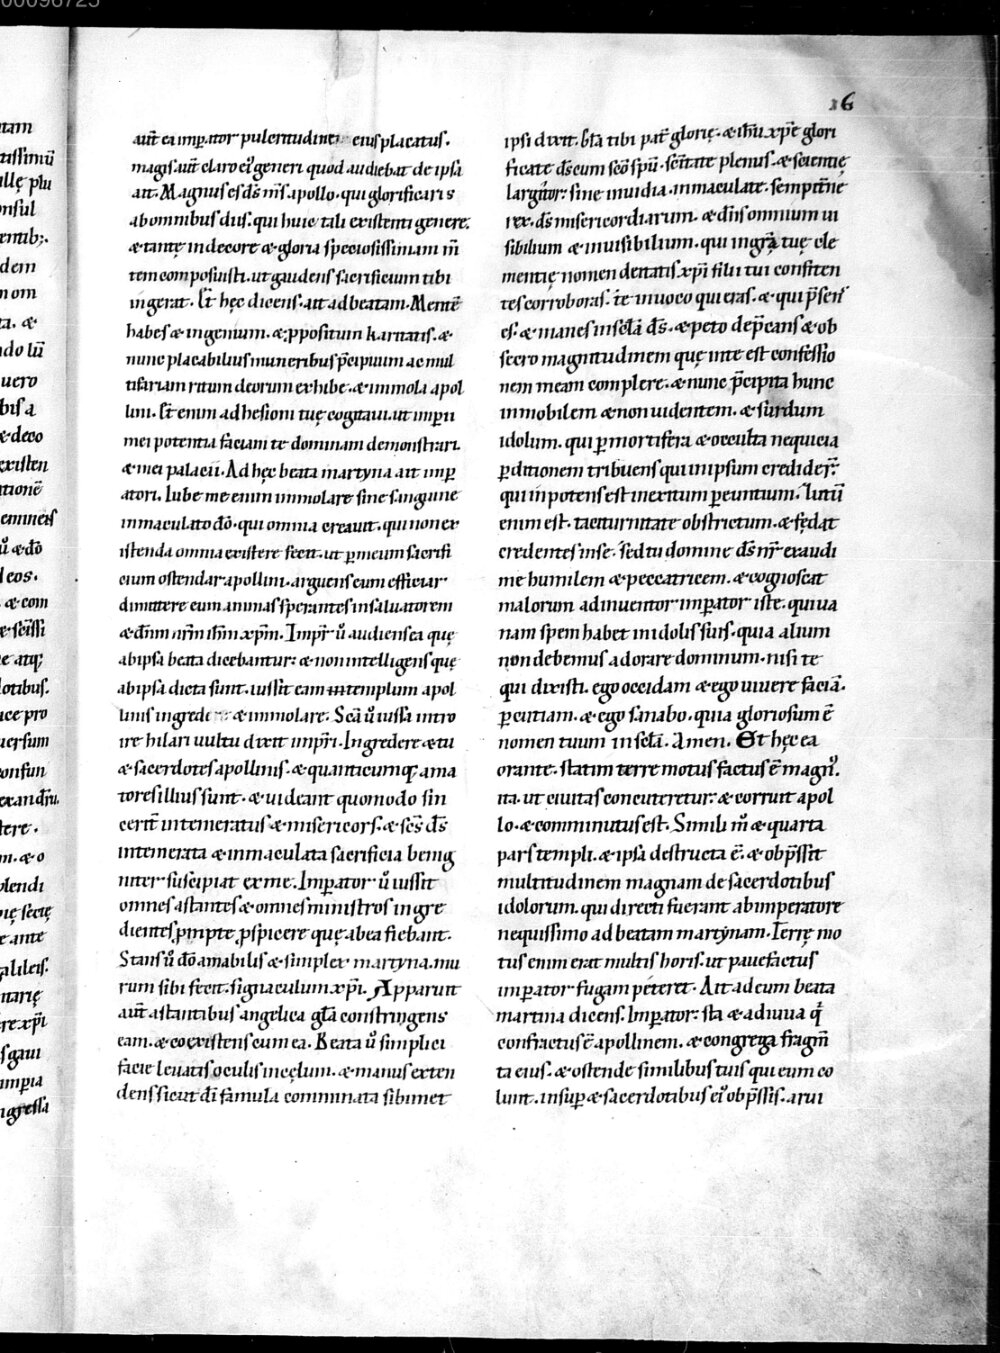 00098725
16
aut̄ ea imp̲ator pulcritudine eius placatus.
magis. aut̄ claro ei᷒ generi quod audiebat de ipsa
ait. Magnus es ds̄ ms̄ apollo. qui glorificaris
ab omnibus diis. qui huic tali existenti genere.
& tantę in decore & gloria speciosissimam m̄
tem composuisti. ut gaudens sacrificium tibi
ingerat. Et hęc dicens. ait ad beatam. Mentē
habes & ingenium. & ꝓpositum karitatis. &
nunc placabilius muneribus p̄cipuum ac mul
tifariam ritum deorum exhibe. & immola apol
lini. Et enim ad hesioni tuę cogitaui. ut imperii
mei potentia faciam te dominam demonstrari.
& mei palacii. Ad hęc beata martyna ait imp̲
atori. Iube me enim immolare sine sanguine
immaculato dō. qui omnia creauit. qui non ex
istenda omnia existere fecit. ut p̲ meum sacrifi
cium ostendar apollini. arguens eum efficiar
dimittere eum animas sperantes in saluatorem
& dn̄m nr̄m ih̄m xp̄m. Imp̄r ū audiens ea quę
ab ipsa beata dicebantur: & non intelligens quę
ab ipsa dicta sunt. iussit eam templum apol
linis ingrede & immolare. Scā ū iussa intro
ire hilari uultu dixit imp̄ri. Ingredere & tu
& sacerdotes apollinis. & quanticumq; ama
tores illius sunt. & uideant quomodo sin
cerit̄ intemeratus & misericors. & sc̄s ds̄
intemerata & immaculata sacrificia benig
niter suscipiat ex me. Imp̲ator ū iussit
omnes astantes & omnes ministros ingre
dientes ꝓmpte ꝓspicere quę ab ea fiebant.
Stans ū dō amabilis & simplex martyna. mu
rum sibi fecit. signaculum xp̄i. Apparuit
aut̄ astantibus angelica glā constringens
eam. & coexistens cum ea. Beata ū simplici
facie leuatis oculis in cęlum. & manus exten
dens sicut dī famula comminata sibimet
ipsi dixit. Glā tibi pat̄ glorię. & ih̄u xp̄e glori
ficate ds̄ cum scō sp̄u. sc̄itate plenus. & scientię
largitor: sine inuidia. immaculate. sempit̄ne
rex. ds̄ misericordiarum. & dn̄s omnium ui
sibilium & inuisibilium. qui in gr̄a tuę cle
mentię nomen deitatis xp̄i filii tui confiten
tes corroboras. te inuoco qui eras. & qui p̄sens̄
es. & manes in sclā ds̄. & peto dep̄cans & ob
secro magnitudinem quę in te est confessio
nem meam complere. & nunc p̄cipita hunc
inmobilem & non uidentem. & surdum
idolum. qui p̲ mortifera & occulta nequicia
p̲ditionem tribuens qui in ipsum credider̄:
qui inpotens est in exitum p̲euntium. Lutū
enim est. taciturnitate obstrictum. & fędat
credentes in se. Sed tu domine ds̄ nr̄ exaudi
me humilem & peccatricem. & cognoscat
malorum adinuentor imp̲ator iste. qui ua
nam spem habet in idolis suis. quia alium
non debemus adorare dominum. nisi te
qui dixisti. ego occidam & ego uiuere faciā.
p̲cutiam. & ego sanabo. quia gloriosum ē
nomen tuum in sclā. Amen. Et hęc ea
orante. statim terre motus factus ē magn᷒.
ita. ut ciuitas concuteretur: & corruit apol
lo. & comminutus est. Simili m̄ & quarta
pars templi. & ipsa destructa ē. & obp̄ssit
multitudinem magnam de sacerdotibus
idolorum. qui directi fuerant ab imperatore
nequissimo ad beatam martynam. Terrę mo
tus enim erat multis horis. ut pauefactus
imp̲ator fugam peteret. Ait ad eum beata
martina dicens. Imp̲ator: sta & adiuua q̇
confractus ē apollinem. & congrega fragm̄
ta eius. & ostende similibus tuis qui eum co
lunt. insup̲ & sacerdotibus ei᷒ obp̄ssis. arui